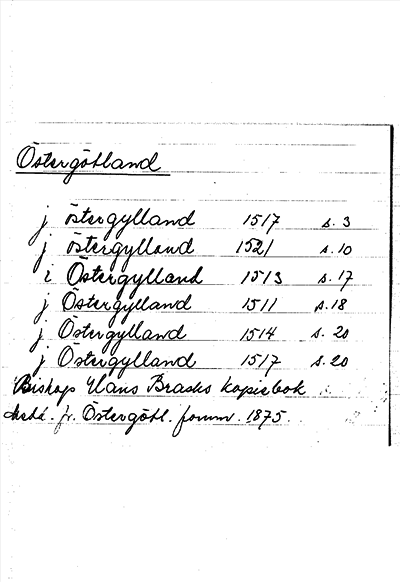 Östergötland
j östergylland 1517 s. 3
j östergylland 1521 s. 10
i Östergylland 1513 s. 17
j Östergylland 1511 s. 18
j Östergylland 1514 s. 20
j Östergylland 1517 s. 20
Biskop Hans Brasks kopiebok
Medd. fr. Östergötl. fornm. 1875.